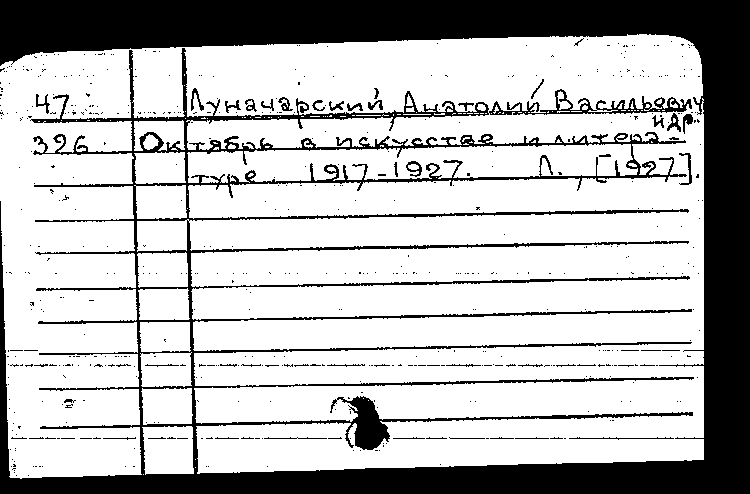 47 Луначарский, Анатолий Васильевич
и др.
326 Октябрь в искусстве и литера-
туре. 1917-1927. Л., [1927].